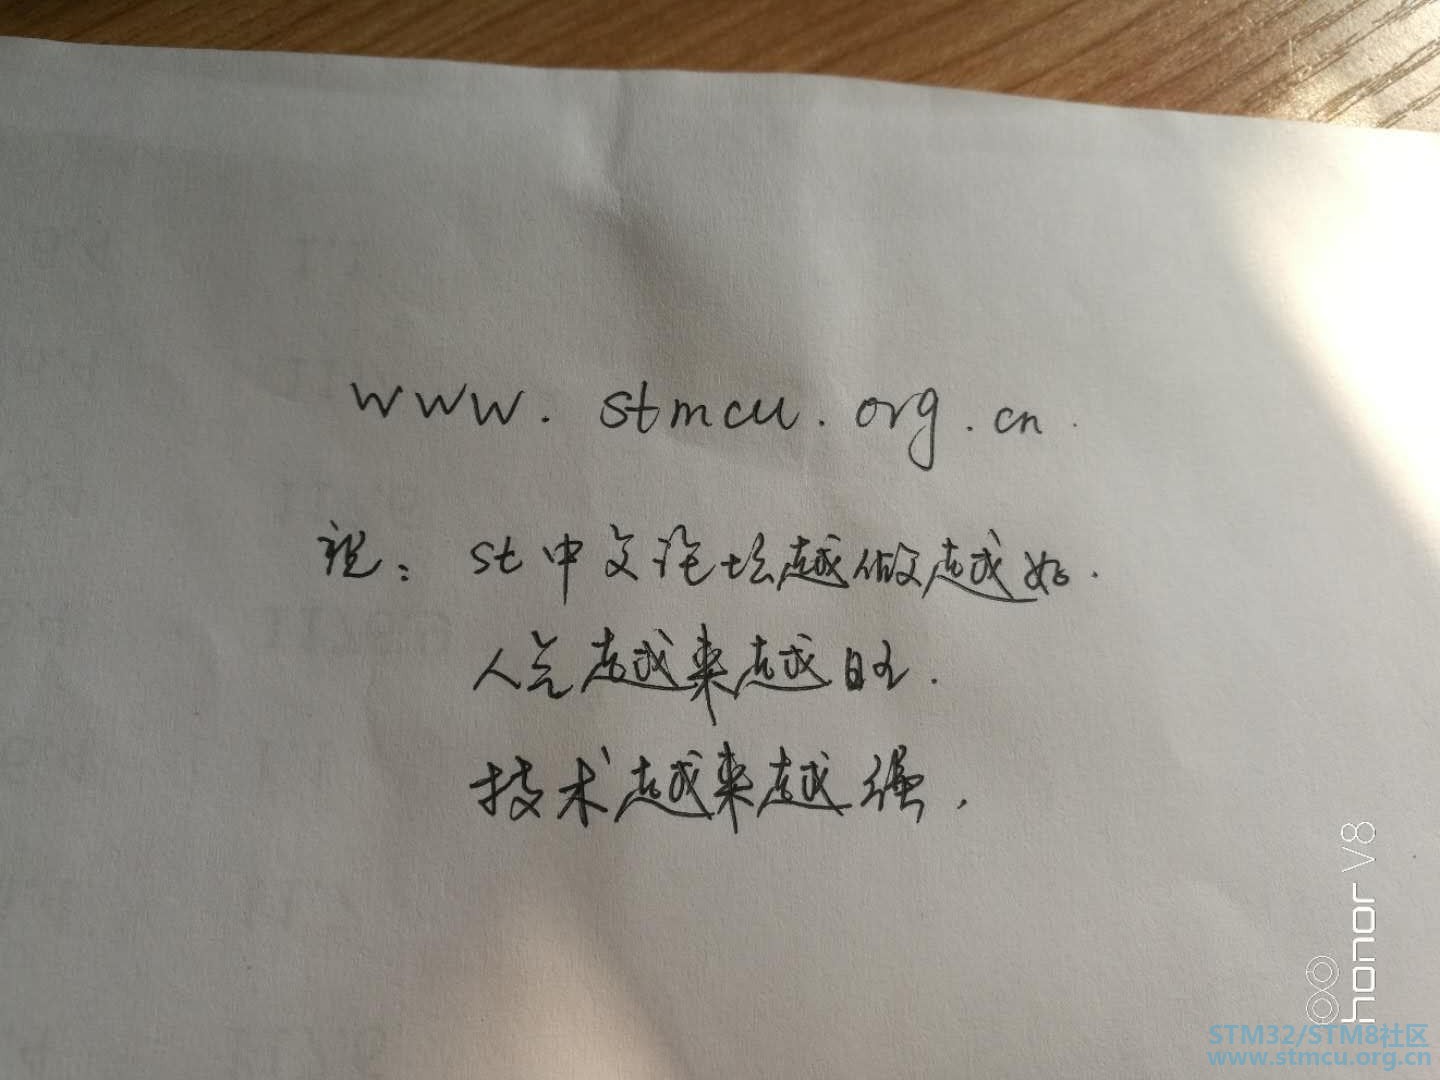 www.stmcu.org.cn.
祝：st中文论坛越做越好.
人气越来越旺.
技术越来越强.
honor V8
STM32/STM8社区
www.stmcu.org.cn